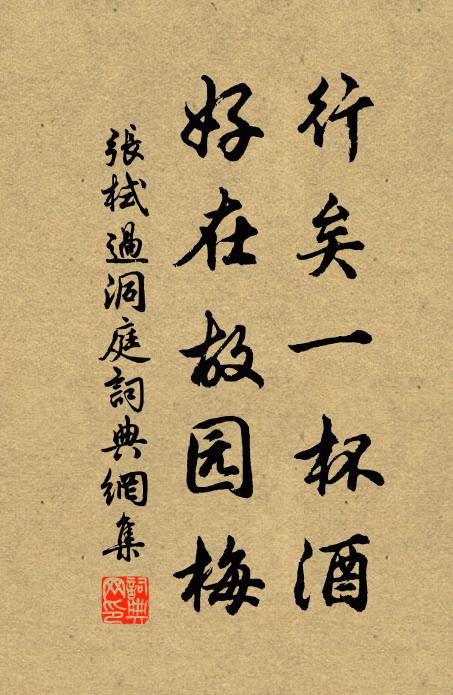 行矣一杯酒
好在故园梅
張栻過洞庭詞典網集
詞典网印